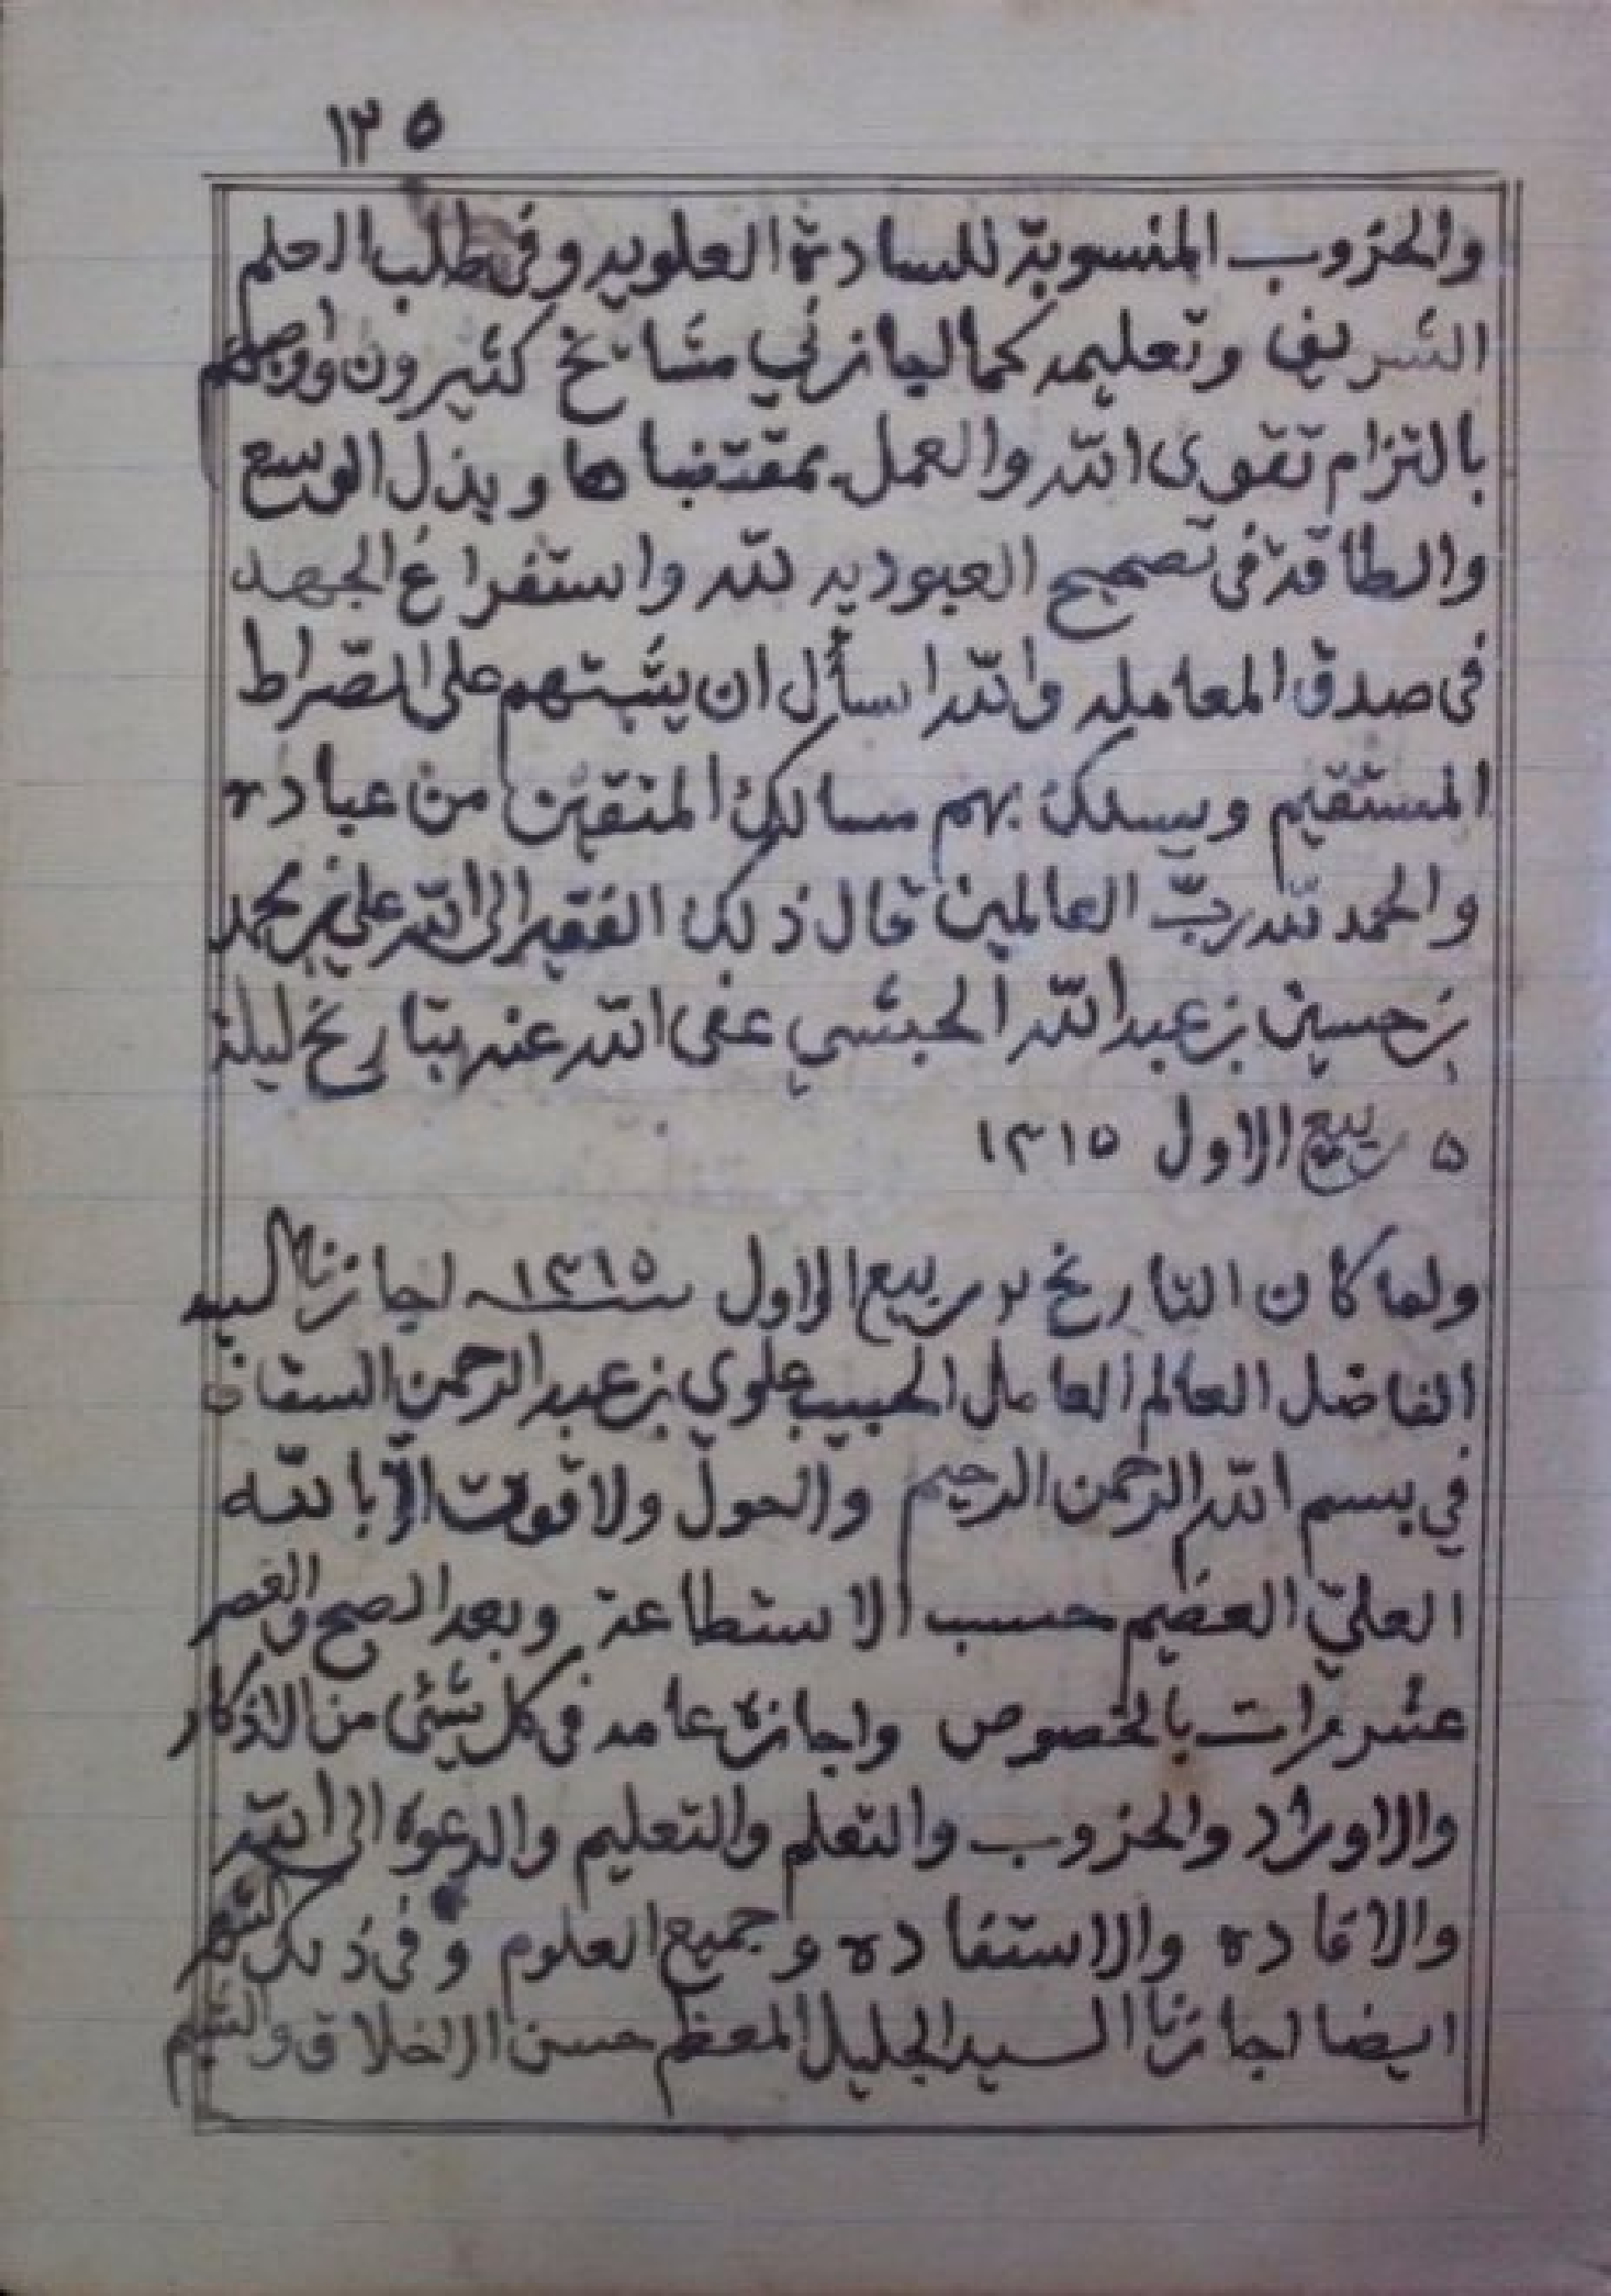 ١٢٥
والحزوب المنسوبة للسادة العلويه وفى طلب العلم
الشريف وتعليمه كما اجازني مشائخ كثيرون واوصيكم
بالتزام تقوى الله والعمل بمقتضاها وبذل الوسع
والطاقة فى تصحيح العبوديه لله واستفراغ الجهد
فى صدق المعامله والله اسأل ان يثبتهم على الصّراط
المستقيم ويسلك بهم مسالك المتقين من عباده
والحمد لله ربّ العالمين قال ذلك الفقير الى الله علي بن محمد
بن حسين بن عبد الله الحبشي عفى الله عنه بتاريخ ليلة
٥ ربيع الاول ١٣١٥
ولما كان التاريخ ربيع الاول سنة ١٣١٥ اجازنا السيد
الفاضل العالم العامل الحبيب علوي بن عبد الرحمن السقاف
في بسم الله الرحمن الرحيم ولاحول ولا قوت الّا بالله
العليّ العضيم حسب الاستطاعة وبعد الصبح والعصر
عشر مرات بالخصوص واجازه عامه فى كل شيئ من الاذكار
والاوراد والحزوب والتعلم والتعليم والدعوه الى الله
والافاده والاستفاده وجميع العلوم وفى ذلك الشهر
ايضا اجازنا السيد الجليل المعظم حسن الاخلاق والشيم